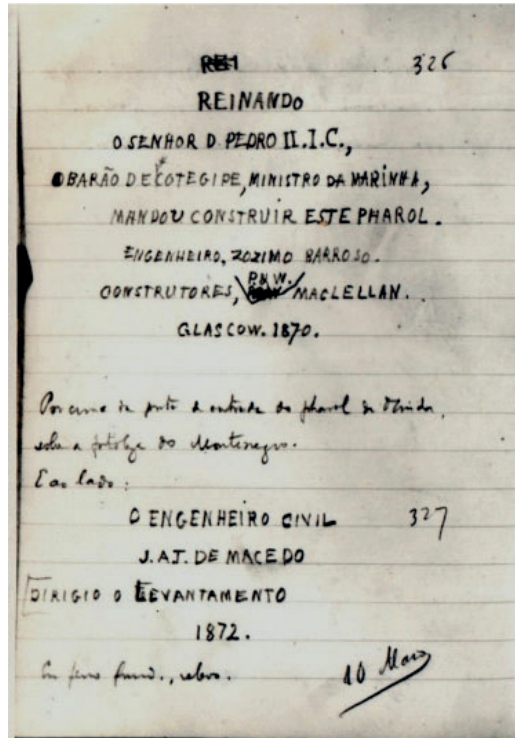 326
REINANDO
O SENHOR D. PEDRO II. I.C.,
O BARÃO DE COTEGIPE, MINISTRO DA MARINHA,
MANDOU CONSTRUIR ESTE PHAROL.
ENGENHEIRO, ZOZIMO BARROSO.
P. & W.
CONSTRUTORES, MACLELLAN.
GLASCOW. 1870.
Por cima da porta de entrada do pharol de Olinda,
sobre a do Montenegro.
E ao lado:
O ENGENHEIRO CIVIL 327
J. A. J. DE MACEDO
DIRIGIO O LEVANTAMENTO
1872.
Em ferro fund., relevo.
10 Maio